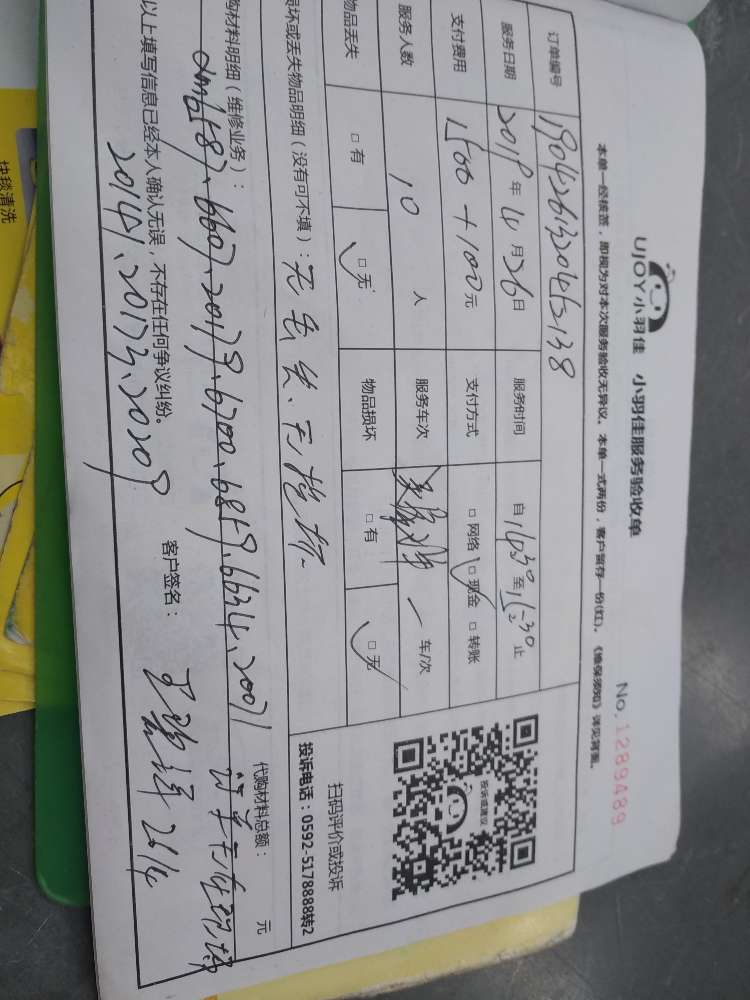 UJOY小羽佳 小羽佳服务验收单
No. 1289489
本单一经核签，即视为对本次服务验收无异议。本单一式两份，客户留存一份(红)。《维保须知》详见背面。
订单编号 190426132045138
服务日期 2019年4月26日 服务时间 自 至 止
支付费用 1500+100元 支付方式 □网络 □现金 □转账
服务人数 10 人 服务车次 一 车/次
物品丢失 □有 □无 物品损坏 □有 □无
损坏或丢失物品明细（没有可不填）：无丢失、无损坏
购材料明细（维修业务）： 代购材料总额： 元
6607.20179.6700.6859.6634.20071
以上填写信息已经本人确认无误，不存在任何争议纠纷。 客户签名：
20141.20173.20209
投诉或建议
扫码评价或投诉
投诉电话：0592-5178888转2
快毯清洗